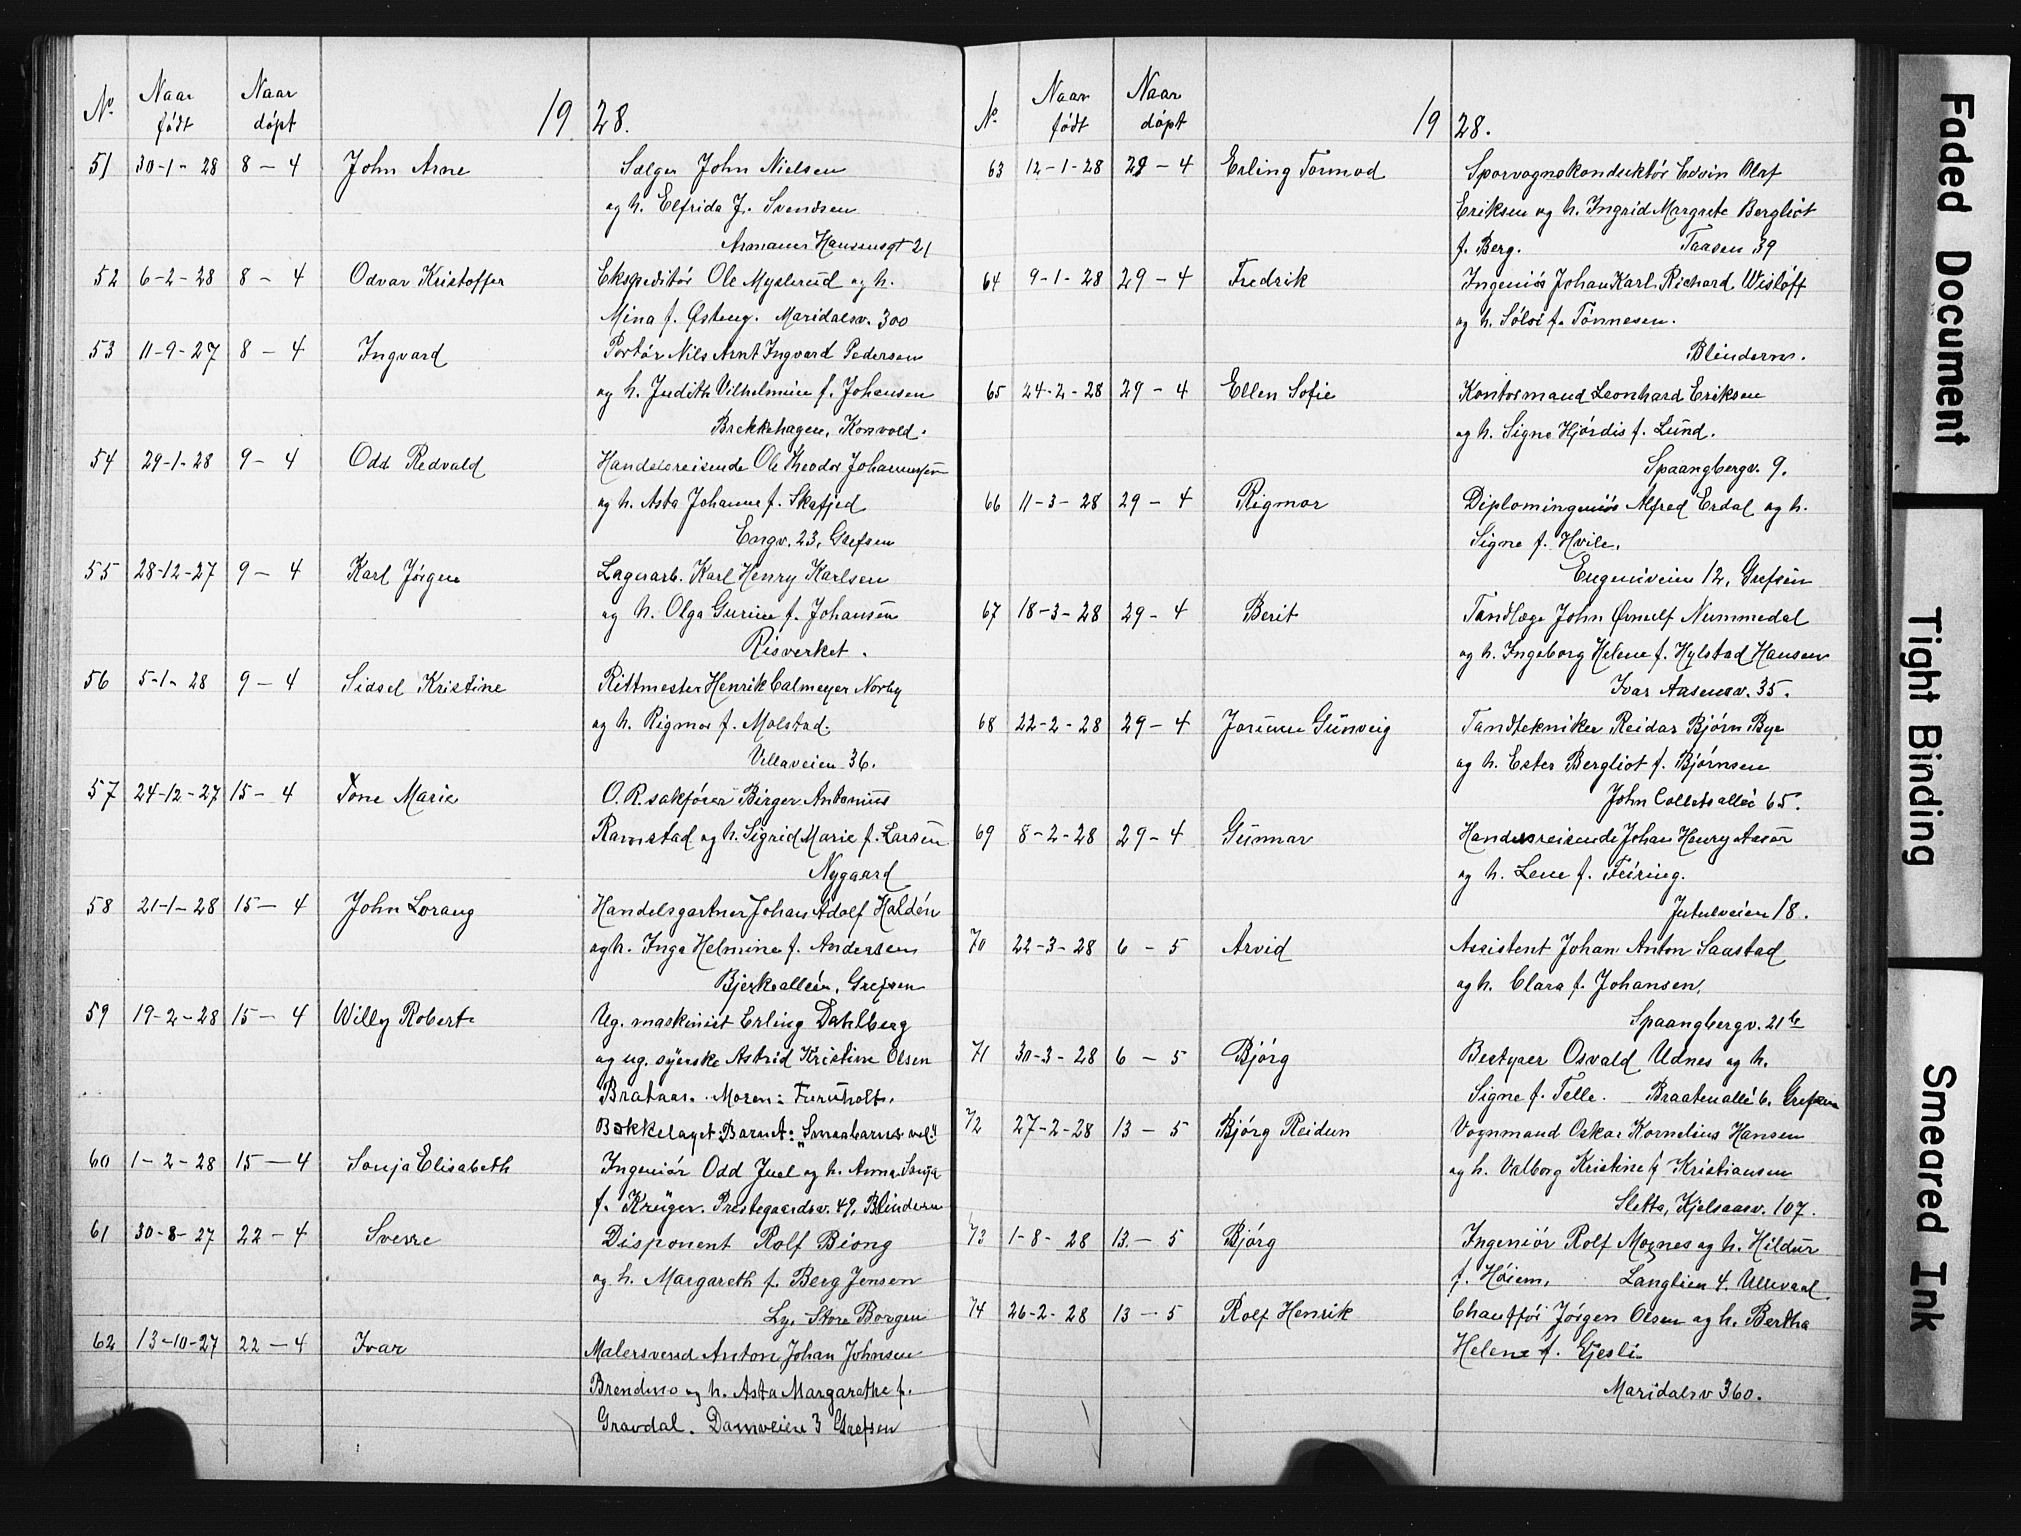 No Naar født Naar døpt 1928.
51 30-1-28 8-4 John Arne Sælger John Nielsen
og h. Elfrida f. Svendsen
Armauer Hansensgt 21
52 6-2-28 8-4 Odvar Kristoffer Ekspeditør Ole Myslerud og h.
Mina f. Østeng. Maridalsv. 300
53 11-9-27 8-4 Ingvard Portør Nils Arnt Ingvard Pedersen
og h. Judith Vilhelmine f. Johansen
Brekkehagen, Korsvold.
54 29-1-28 9-4 Odd Redvald Handelsreisende Ole Theodor Johannessen
og h. Asta Johanne f. Skafjed
Engv. 23, Grefsen
55 28-12-27 9-4 Karl Jørgen Lagerarb. Karl Henry Karlsen
og h. Olga Gurine f. Johansen
Risverket.
56 5-1-28 9-4 Sidsel Kristine Rittmester Henrik Calmeyer Norby
og h. Rigmor f. Molstad.
Villaveien 36.
57 24-12-27 15-4 Tone Marie O.R.sakfører Birger Antonius
Ramstad og h. Sigrid Marie f. Larsen
Nygaard
58 21-1-28 15-4 John Lorang Handelsgartner Johan Adolf Haldén
og h. Inga Helmine f. Andersen
Bjerkealleén, Grefsen
59 19-2-28 15-4 Willy Robert Ug. maskinist Erling Dahlberg
og ug. syerske Astrid Kristine Olsen
Brataas. Moren: Furuholt,
Bækkelaget. Barnet: "Smaabarns vel."
60 1-2-28 15-4 Sonja Elisabeth Ingeniør Odd Juel og h. Anna Sonja
f. Krüger. Prestegaardsv. 49, Blindern
61 30-8-27 22-4 Sverre Disponent Rolf Biong
og h. Margareth f. Berg Jensen
Ly, Store Borgen
62 13-10-27 22-4 Ivar Malersvend Anton Johan Johnsen
Brendmo og h. Asta Margarethe f.
Gravdal. Damveien 3 Grefsen
No Naar født Naar døpt 1928.
63 12-1-28 29-4 Erling Tormod Sporvognskonduktør Edvin Olaf
Eriksen og h. Ingrid Margrete Bergliot
f. Berg. Taasen 39
64 9-1-28 29-4 Fredrik Ingeniør Johan Karl Richard Wisløff
og h. Sølvi f. Tønnesen.
Blindern.
65 24-2-28 29-4 Ellen Sofie Kontormand Leonhard Eriksen
og h. Signe Hjørdis f. Lund.
Spaangbergv. 9.
66 11-3-28 29-4 Rigmor Diplomingeniør Alfred Erdal og h.
Signe f. Hvile.
Eugeniveien 12, Grefsen
67 18-3-28 29-4 Berit Tandlæge John Ørnulf Nummedal
og h. Ingeborg Helene f. Hylstad Hansen
Ivar Aasensv. 35.
68 22-2-28 29-4 Jorunn Gunveig Tandtekniker Reidar Bjørn Bye
og h. Ester Bergliot f. Bjørnsen
John Colletsallé 65.
69 8-2-28 29-4 Gunnar Handelsreisende Johan Henry Aasør
og h. Lene f. Feiring.
Jutulveien 18.
70 22-3-28 6-5 Arvid Assistent Johan Anton Saastad
og h. Clara f. Johansen,
Spaangbergv. 21 b
71 30-3-28 6-5 Bjørg Bestyrer Osvald Udnes og h.
Signe f. Telle. Braatenallé 6. Grefsen
72 27-2-28 13-5 Bjørg Reidun Vognmand Oskar Kornelius Hansen
og h. Valborg Kristine f. Kristiansen
Sletta, Kjelsaasv. 107.
73 1-8-28 13-5 Bjørg Ingeniør Rolf Mognes og h. Hildur
f. Høiem, Langlien 4. Ullevaal
74 26-2-28 13-5 Rolf Henrik Chauffør Jørgen Olsen og h. Bertha
Helene f. Gjesli
Maridalsv 360.
Faded Document
Tight Binding
Smeared Ink